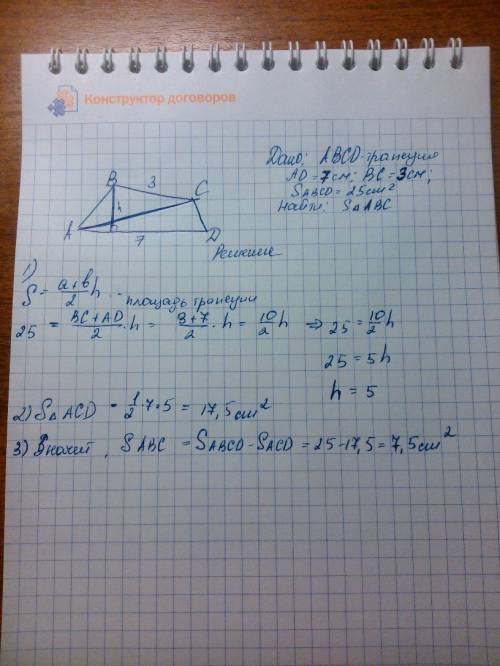 Конструктор договоров
Дано: ABCD-трапеция
AD=7см; BC=3см;
SABCD=25см²
Найти: S△ABC
B 3 C
h
A 7 D
Решение
1)
S = a+b/2 h - площадь трапеции
25 = BC+AD/2 · h = 3+7/2 · h = 10/2 h ⇒ 25 = 10/2 h
25 = 5h
h = 5
2) S△ACD = 1/2 · 7 · 5 = 17,5см²
3) Значит, SABC = SABCD - SACD = 25-17,5 = 7,5см²